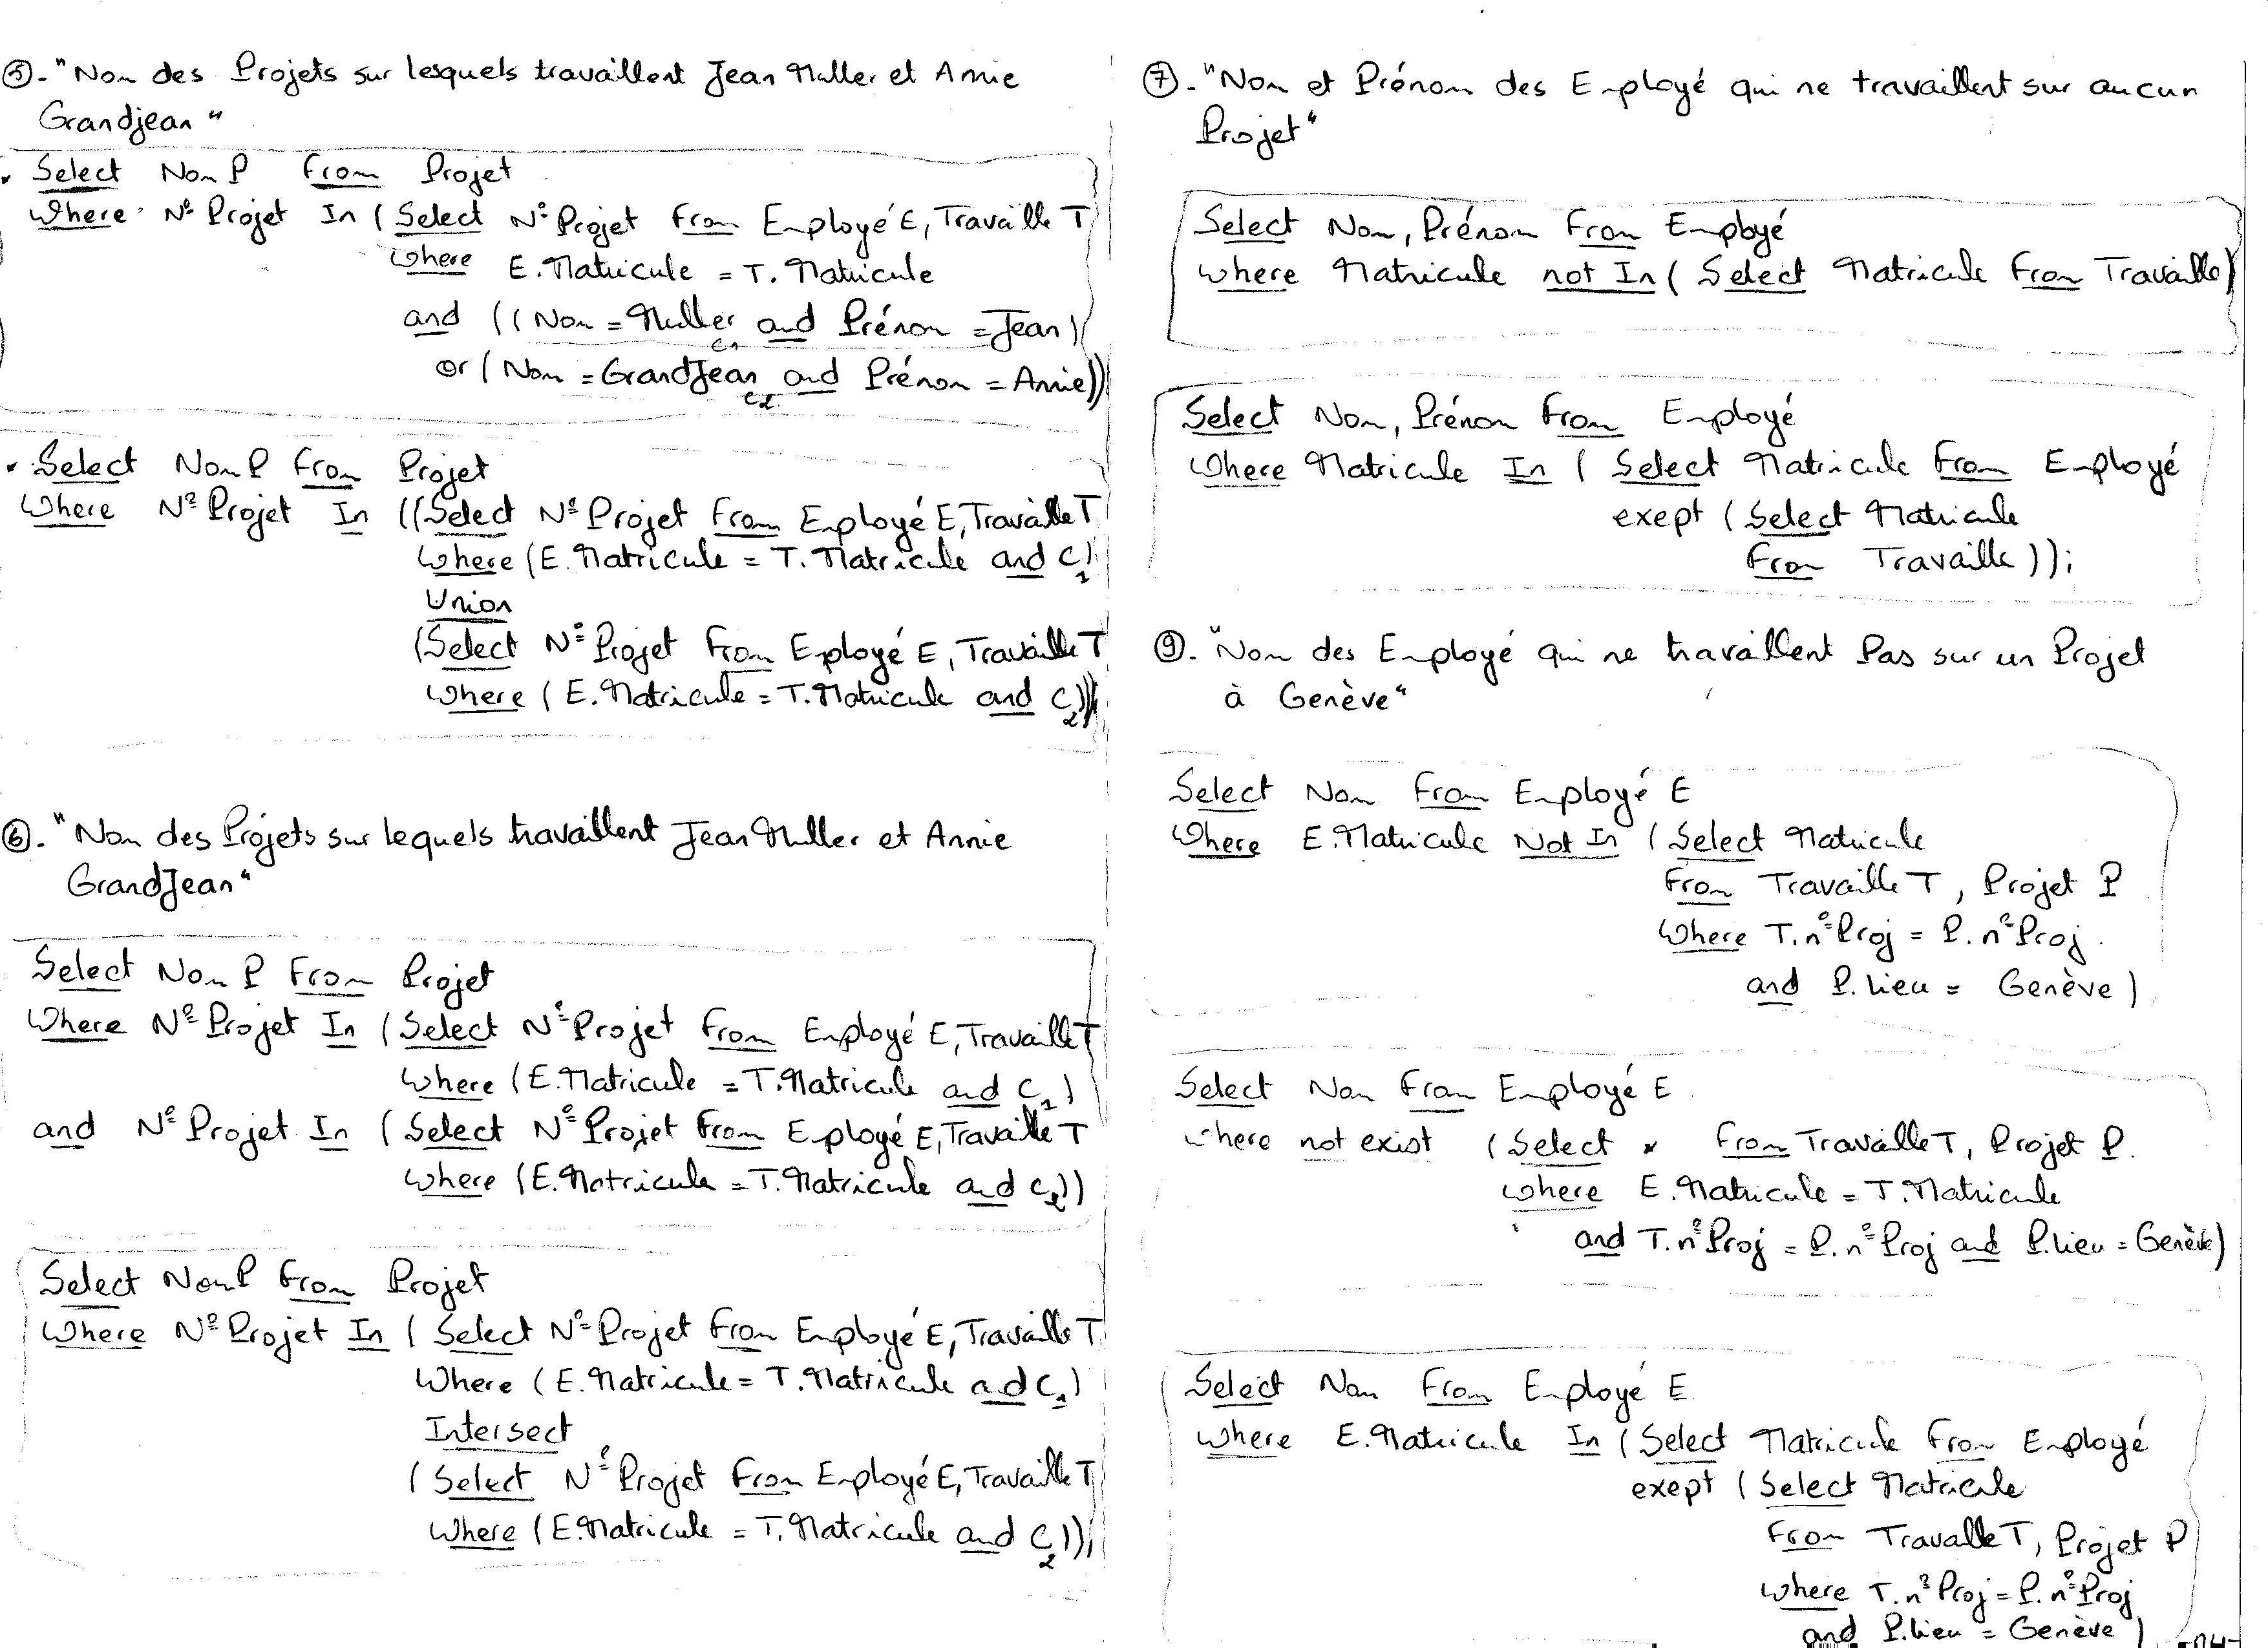 ⑤. "Nom des Projets sur lesquels travaillent Jean Muller et Annie
Grandjean"
Select Nom P From Projet
Where N° Projet In ( Select N° Projet From Employé E, Travaille T
Where E. Matricule = T. Matricule
and ((Nom = Muller and Prénom = Jean)
C1
or (Nom = GrandJean and Prénom = Annie))
C2
Select NomP From Projet
Where N° Projet In ((Select N° Projet From Employé E, Travaille T
Where (E. Matricule = T. Matricule and C1)
Union
(Select N° Projet From Employé E, Travaille T
Where (E. Matricule = T. Matricule and C2)))
⑥. "Nom des Projets sur lequels travaillent Jean Muller et Annie
GrandJean"
Select Nom P From Projet
Where N° Projet In (Select N° Projet From Employé E, Travaille T
Where (E. Matricule = T. Matricule and C1)
and N° Projet In (Select N° Projet From Employé E, Travaille T
Where (E. Matricule = T. Matricule and C2))
Select NomP From Projet
Where N° Projet In ( Select N° Projet From Employé E, Travaille T
Where (E. Matricule = T. Matricule and C1)
Intersect
(Select N° Projet From Employé E, Travaille T
Where (E. Matricule = T. Matricule and C2));
⑦. "Nom et Prénom des Employé qui ne travaillent sur aucun
Projet"
Select Nom, Prénom From Employé
Where Matricule not In ( Select Matricule From Travaille)
Select Nom, Prénom From Employé
Where Matricule In ( Select Matricule From Employé
exept (Select Matricule
From Travaille));
⑨. "Nom des Employé qui ne travaillent Pas sur un Projet
à Genève"
Select Nom From Employé E
Where E. Matricule Not In ( Select Matricule
From Travaille T, Projet P
Where T. n° Proj = P. n° Proj
and P. lieu = Genève)
Select Nom From Employé E
where not exist (Select * From Travaille T, Projet P.
where E. Matricule = T. Matricule
and T. n° Proj = P. n° Proj and P. lieu = Genève)
Select Nom From Employé E
where E. Matricule In (Select Matricule From Employé
exept (Select Matricule
From Travaille T, Projet P
where T. n° Proj = P. n° Proj
and P. lieu = Genève)